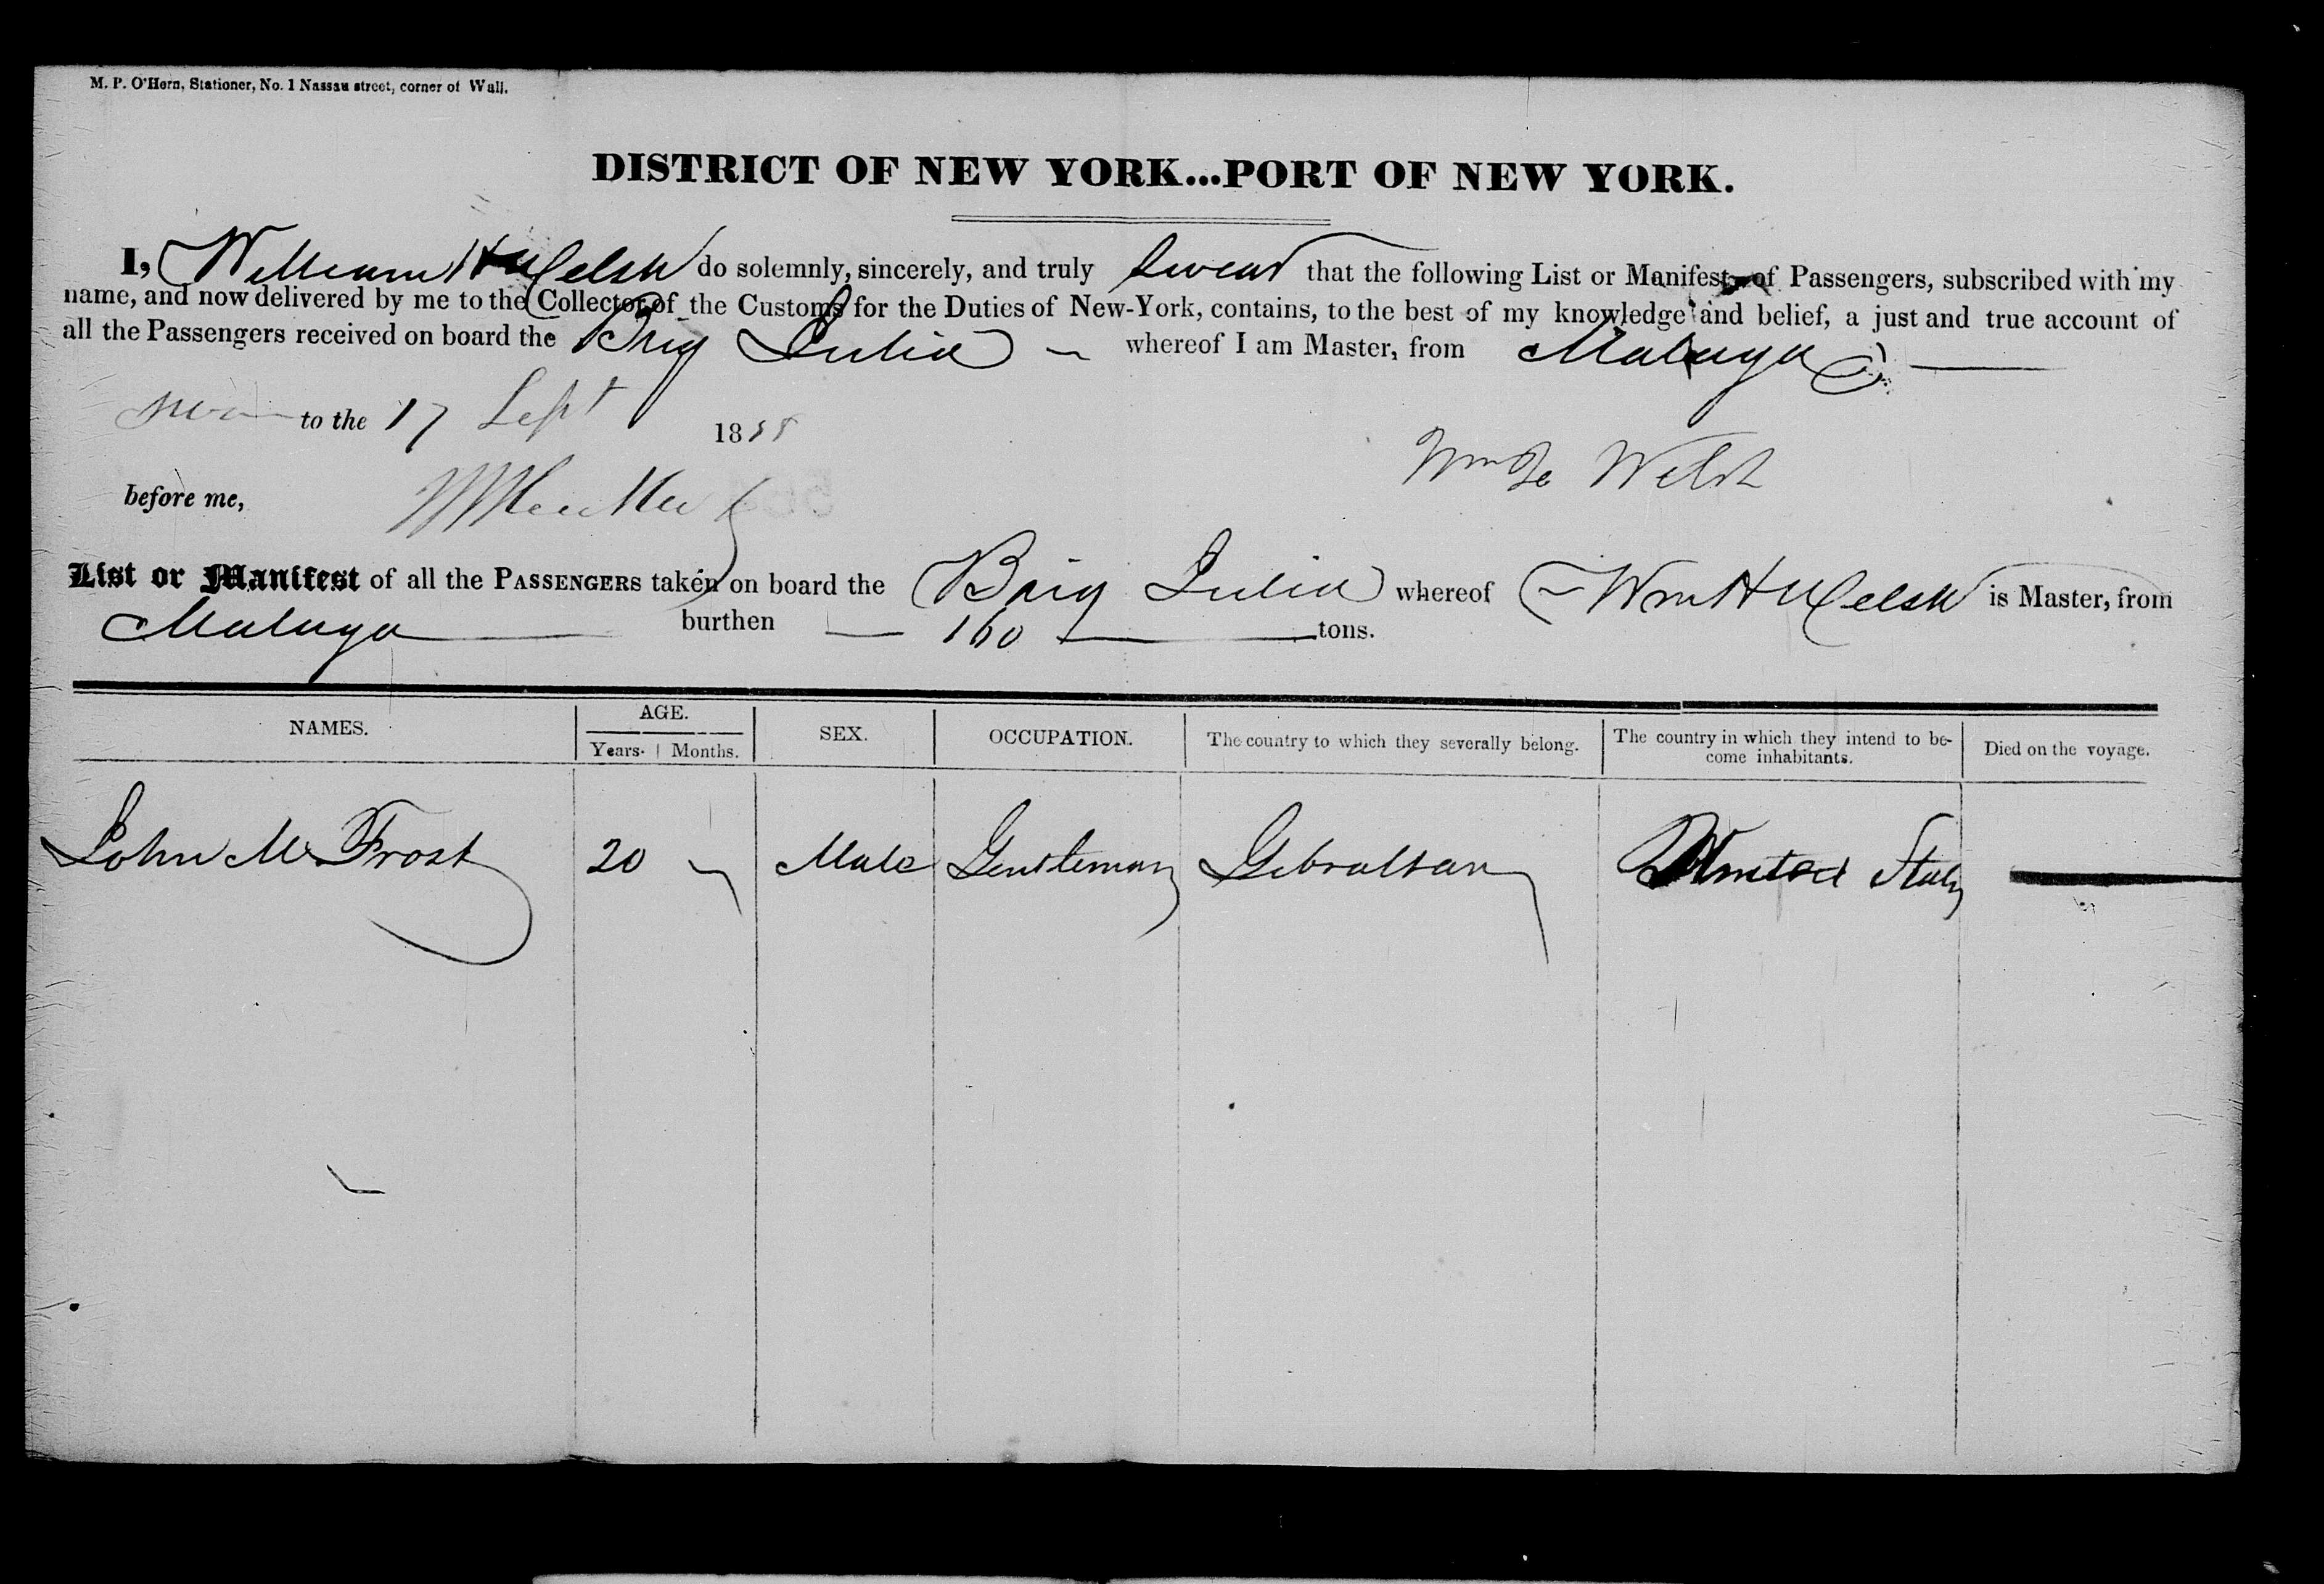 M. P. O'Hern, Stationer, No. 1 Nassau street, corner of Wall.
DISTRICT OF NEW YORK...PORT OF NEW YORK.
I, William H Welsh do solemnly, sincerely, and truly swear that the following List or Manifest of Passengers, subscribed with my
name, and now delivered by me to the Collector of the Customs for the Duties of New-York, contains, to the best of my knowledge and belief, a just and true account of
all the Passengers received on board the Brig Julia whereof I am Master, from Malaga
sworn to the 17 Sept 18
Wm H Welsh
before me,
List or Manifest of all the PASSENGERS taken on board the Brig Julia whereof Wm H Welsh is Master, from
Malaga burthen 160 tons.
NAMES. AGE. Years. Months. SEX. OCCUPATION. The country to which they severally belong. The country in which they intend to be-come inhabitants. Died on the voyage.
John M Frost 20 Male Gentleman Gibraltar United States